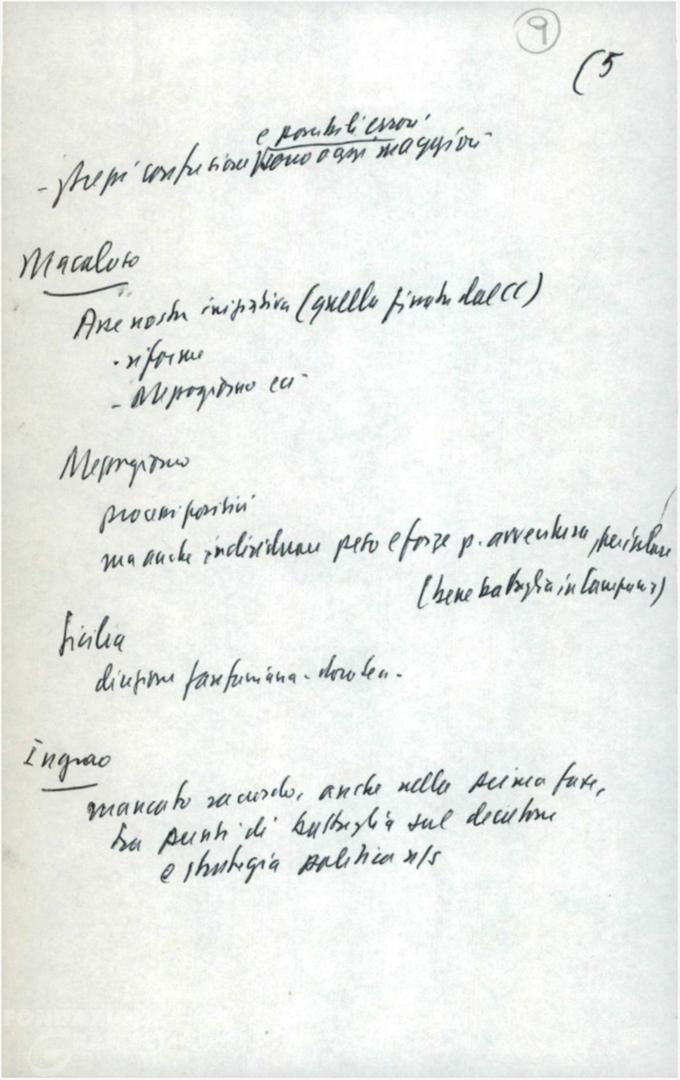 9
(5
e possibili errori
- stessi confusione sono oggi maggiori
Macaluso
Asse nostra iniziativa (quella fissata dal CC)
- riforme
- Mezzogiorno ecc
Mezzogiorno
processi positivi
ma anche individuare peso e forze p. avventura,
(bene battaglia in Campania)
Sicilia
direzione fanfaniana-dorotea.
Ingrao
mancato raccordo, anche nella prima fase,
tra punti di battaglia sul decretone
e strategia politica n/s
FONDAZIONE
GRAMSCI